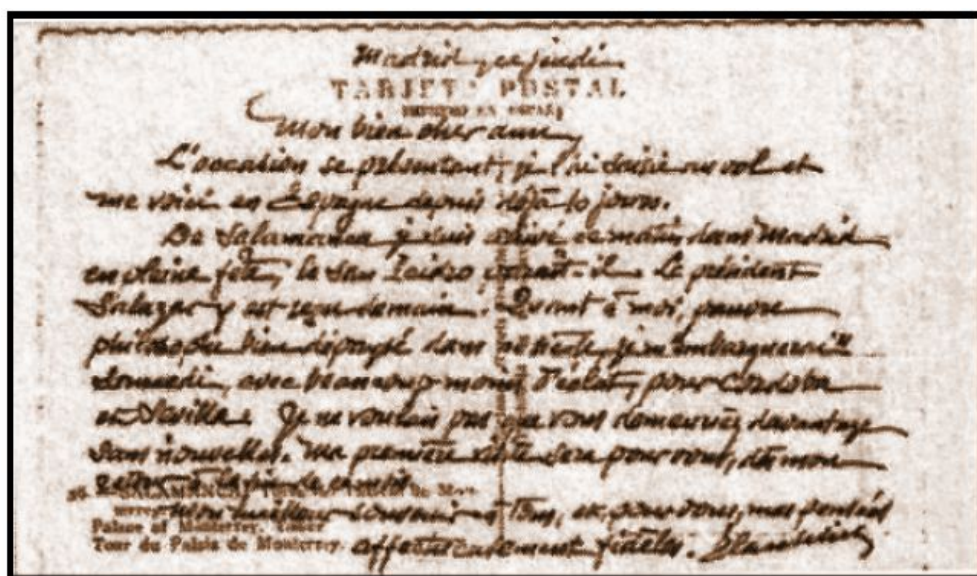 Madrid, ce jeudi
TARJETA POSTAL
Mon bien cher ami,
L'occasion se présentant, je l'ai saisie au vol et
me voici en Espagne depuis déjà 10 jours.
De Salamanca je suis arrivé ce matin, dans Madrid
en pleine fête, la San Isidro, paraît-il. Le président
Salazar y est reçu demain. Quant à moi, pauvre
philosophe bien dépaysé dans je m'embarquerai
samedi, avec beaucoup moins d'éclat, pour Cordoba
et Sevilla. Je ne voulais pas que vous demeuriez davantage
sans nouvelles. Ma première visite sera pour vous, dès mon
retour à la fin de ce mois.
SALAMANCA
Mon meilleur souvenir à tous, et pour vous, mes pensées
Palace of Monterrey. Tower
Tour du Palais de Monterrey.
affectueusement fidèles.